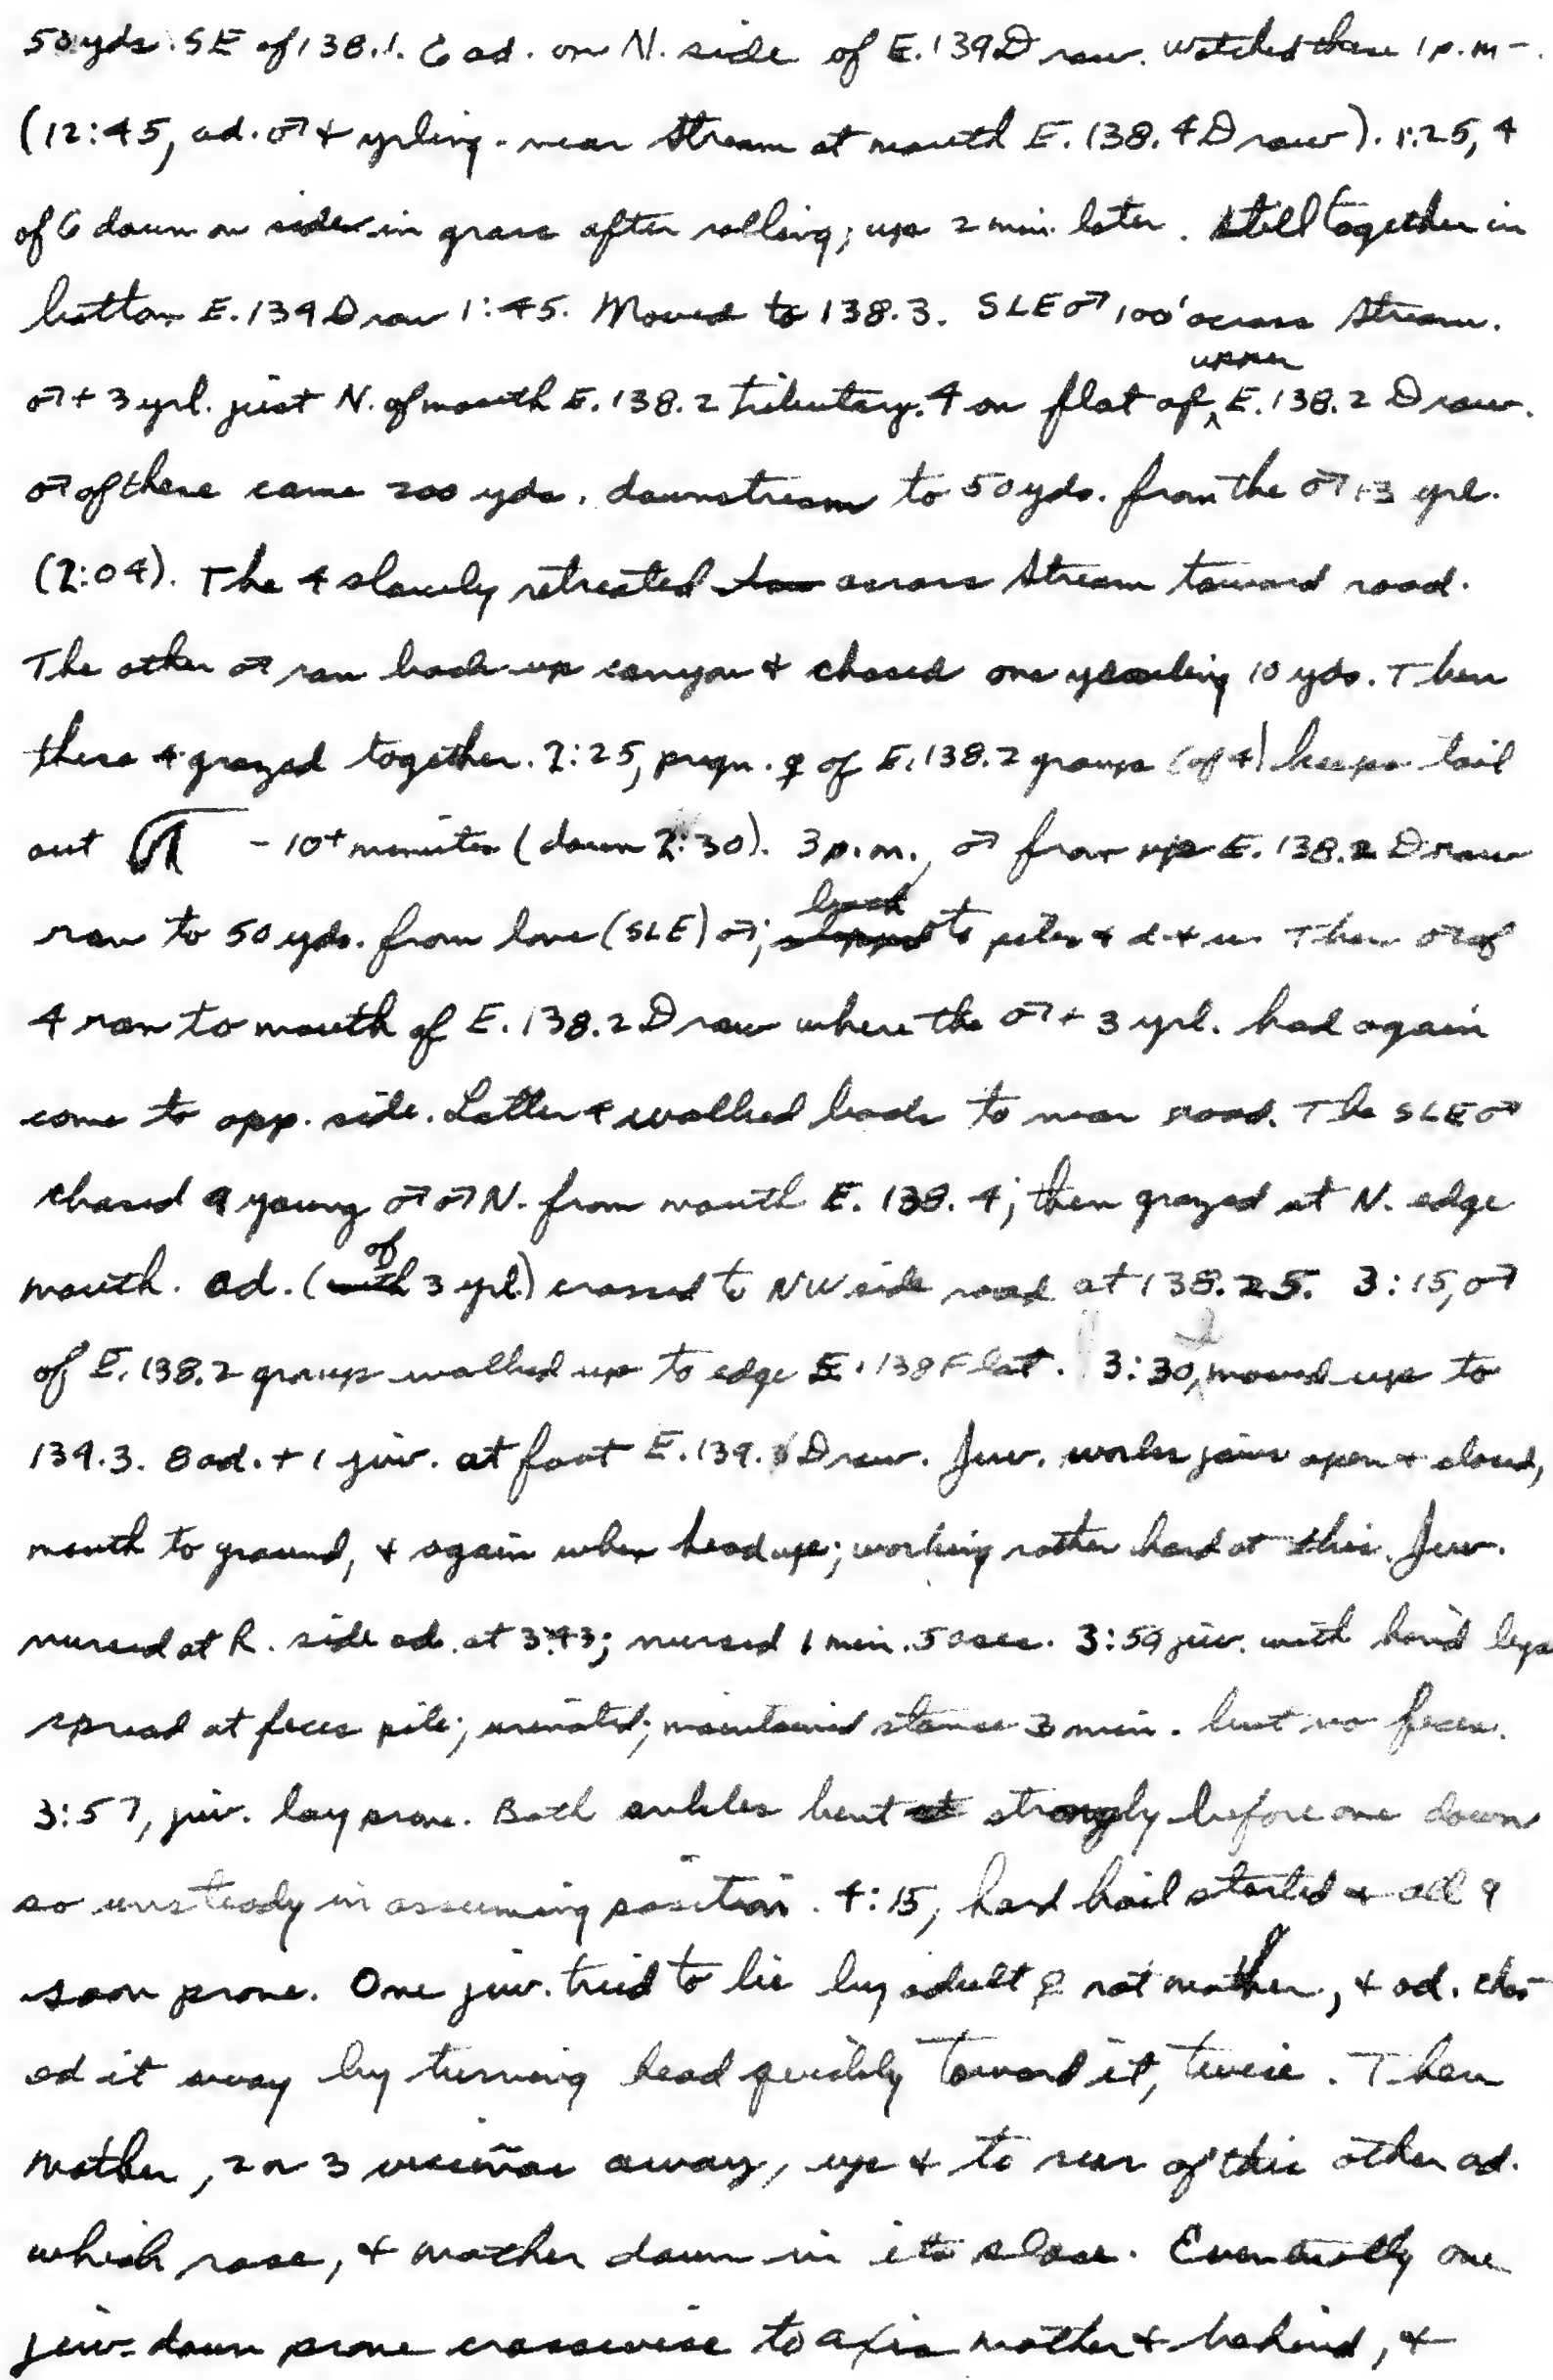 50 yds. SE of 138.1. 6 ad. on N. side of E. 139 Draw. Watched these 1 p.m-.
(12:45, ad. ♂ + yrling. near stream at mouth E. 138.4 Draw). 1:25, 4
of 6 down on sides in grass after rolling; up 2 min. later. Still together in
bottom E. 139 Draw 1:45. Moved to 138.3. SLE ♂ 100' across stream.
♂ + 3 yrl. just N. of mouth E. 138.2 tributary. 4 on flat of upper E. 138.2 Draw.
♂ of these came 200 yds. downstream to 50 yds. from the ♂ + 3 yrl.
(2:04). The 4 slowly retreated across stream toward road.
The other ♂ ran back up canyon & chased one yearling 10 yds. Then
these 4 grazed together. 2:25, pregn. ♀ of E. 138.2 group (of 4) keeps tail
out - 10+ minutes (down 2:30). 3 p.m., ♂ from up E. 138.2 Draw
ran to 50 yds. from lone (SLE) ♂; back to piles & d. + u. Then ♂ of
4 ran to mouth of E. 138.2 Draw where the ♂ + 3 yrl. had again
come to opp. side. Latter 4 walked back to near road. The SLE ♂
chased 9 young ♂♂ N. from mouth E. 138.4; then grazed at N. edge
mouth. Ad. (of 3 yrl.) crossed to NW side road at 138.25. 3:15, ♂
of E. 138.2 group walked up to edge E. 138 Flat. 3:30, I moved up to
139.3. 8 ad. + 1 juv. at foot E. 139.3 Draw. Juv. works jaws open & closed,
mouth to ground, & again when head up; working rather hard at this. Juv.
nursed at R. side ad. at 3:43; nursed 1 min. 50 sec. 3:54 juv. with hind legs
spread at feces pile; urinated; maintained stance 3 min. but no feces.
3:57, juv. lay prone. Both ankles bent strongly before one down
so unsteady in assuming position. 4:15, hard hail started & all 9
soon prone. One juv. tried to lie by adult ♀ not mother, & ad. chas-
ed it away by turning head quickly toward it, twice. Then
mother, 2 or 3 vicuñas away, up & to rear of this other ad.
which rose, & mother down in its place. Eventually one
juv. down prone crosswise to axis mother & behind, &